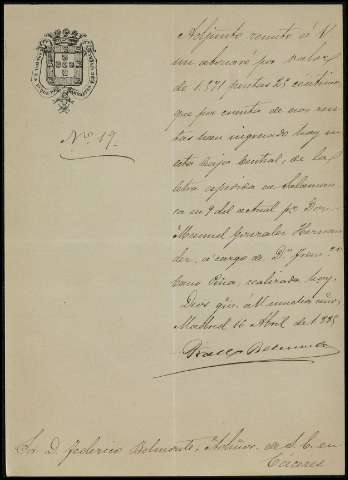 Nº 19.
Adjunto remito á V.
un abonaré por valor
de 1.571 pesetas 25 céntimos
que por cuenta de sus ren-
tas han ingresado hoy en
esta Caja Central, de la
letra espedida en Salaman-
ca en 9 del actual por Don
Manuel Gonzalez Hernan-
dez, á cargo de D.
realizada hoy.
Dios gue. a V. muchos años.
Madrid 16 Abril de 1.885
Sor. D. Federico Belmonte, Admor. de S. E. en
Cáceres